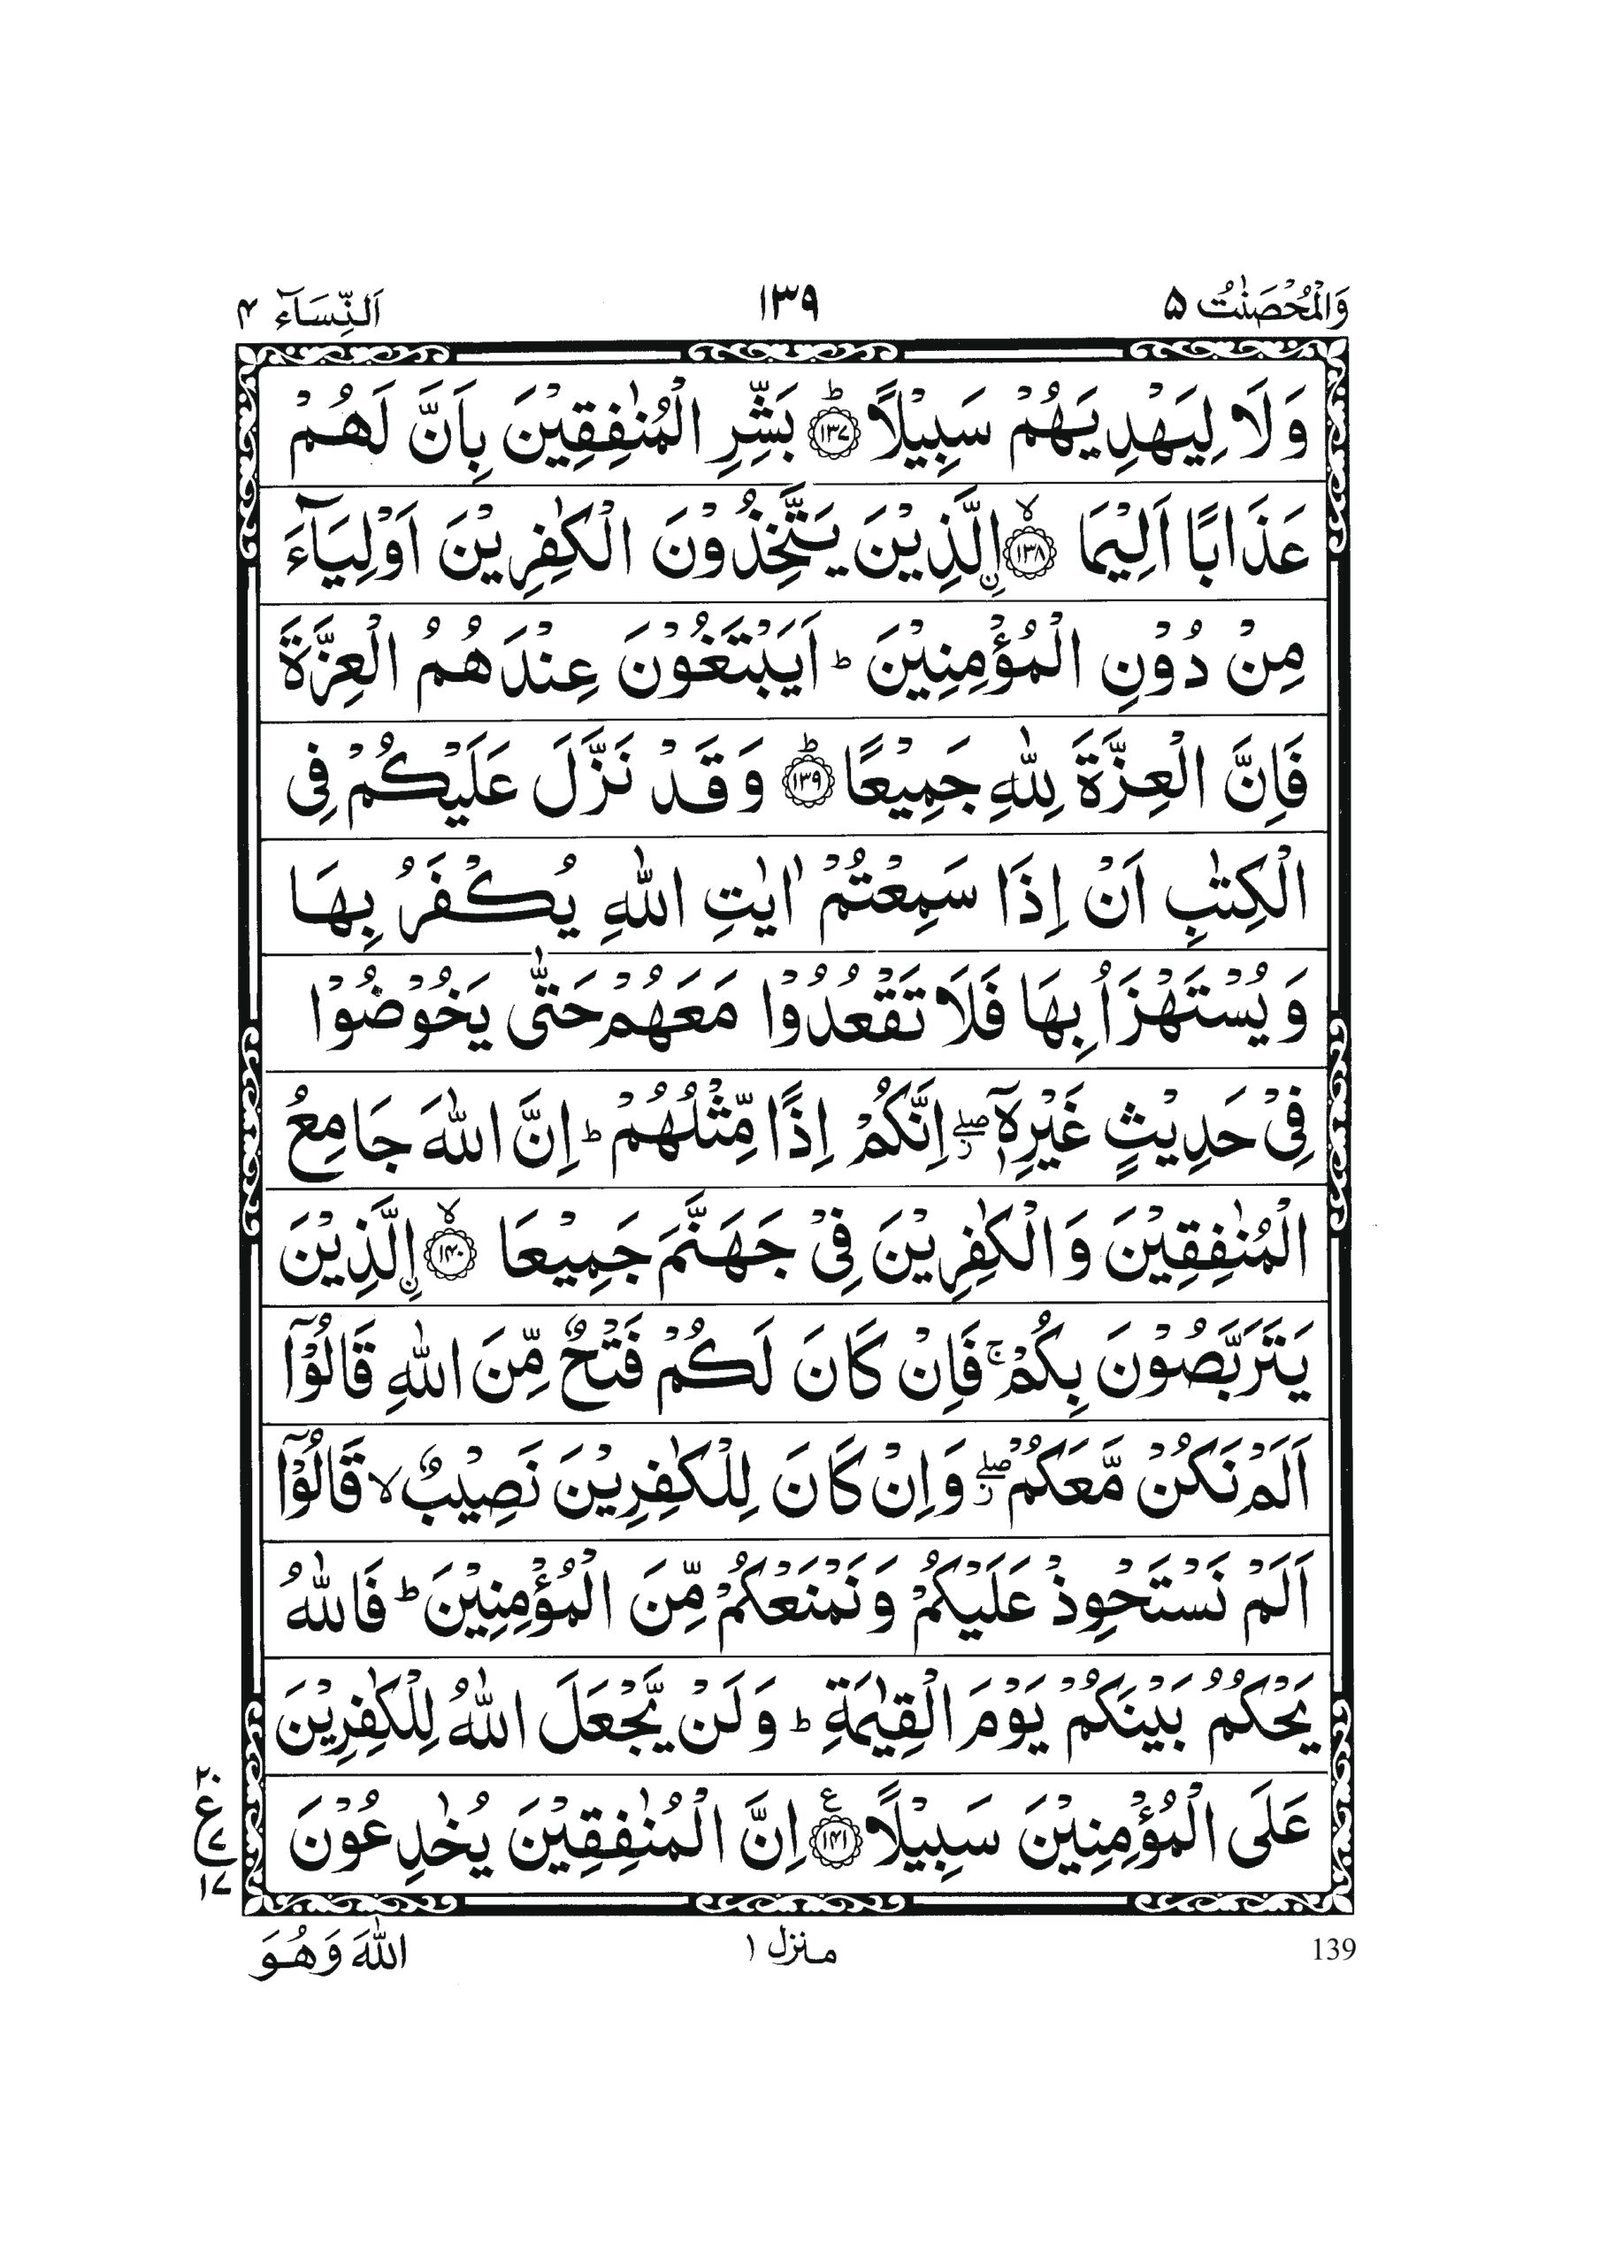 وَالْمُحْصَنٰتُ ۵
۱۳۹
اَلنِّسَآء ۴
وَلَا لِيَهْدِيَهُمْ سَبِيْلًا ؕ﴿۱۳۷﴾ بَشِّرِ الْمُنٰفِقِيْنَ بِاَنَّ لَهُمْ
عَذَابًا اَلِيْمَا ۙ﴿۱۳۸﴾ اۨلَّذِيْنَ يَتَّخِذُوْنَ الْكٰفِرِيْنَ اَوْلِيَآءَ
مِنْ دُوْنِ الْمُؤْمِنِيْنَ ؕ اَيَبْتَغُوْنَ عِنْدَهُمُ الْعِزَّةَ
فَاِنَّ الْعِزَّةَ لِلّٰهِ جَمِيْعًا ؕ﴿۱۳۹﴾ وَقَدْ نَزَّلَ عَلَيْكُمْ فِى
الْكِتٰبِ اَنْ اِذَا سَمِعْتُمْ اٰيٰتِ اللّٰهِ يُكْفَرُ بِهَا
وَيُسْتَهْزَاُ بِهَا فَلَا تَقْعُدُوْا مَعَهُمْ حَتّٰى يَخُوْضُوْا
فِىْ حَدِيْثٍ غَيْرِهٖۤ ۖ اِنَّكُمْ اِذًا مِّثْلُهُمْ ؕ اِنَّ اللّٰهَ جَامِعُ
الْمُنٰفِقِيْنَ وَالْكٰفِرِيْنَ فِىْ جَهَنَّمَ جَمِيْعَا ۙ﴿۱۴۰﴾ اۨلَّذِيْنَ
يَتَرَبَّصُوْنَ بِكُمْ ۚ فَاِنْ كَانَ لَكُمْ فَتْحٌ مِّنَ اللّٰهِ قَالُوْۤا
اَلَمْ نَكُنْ مَّعَكُمْ ۖ وَاِنْ كَانَ لِلْكٰفِرِيْنَ نَصِيْبٌ ۙ قَالُوْۤا
اَلَمْ نَسْتَحْوِذْ عَلَيْكُمْ وَنَمْنَعْكُمْ مِّنَ الْمُؤْمِنِيْنَ ؕ فَاللّٰهُ
يَحْكُمُ بَيْنَكُمْ يَوْمَ الْقِيٰمَةِ ؕ وَلَنْ يَّجْعَلَ اللّٰهُ لِلْكٰفِرِيْنَ
عَلَى الْمُؤْمِنِيْنَ سَبِيْلًا ﴿۱۴۱﴾ع اِنَّ الْمُنٰفِقِيْنَ يُخٰدِعُوْنَ
۲۰
ع
۷
۱۷
139
منزل ۱
اللّٰهَ وَهُوَ